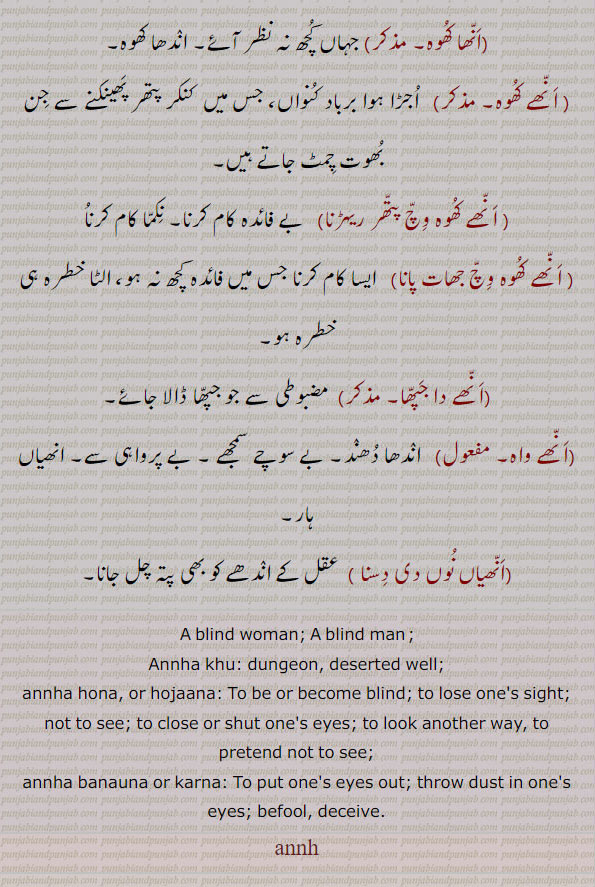 (اَنّھا کُھوہ۔ مذکر) جہاں کُچھ نہ نظر آئے۔ انْدھا کھوہ۔
( اَنّھے کُھوہ۔ مذکر) اُجڑا ہوا برباد کُنواں، جس میں کنکر پتھر پَھینکنے سے جِن
بُھوت چِمٹ جاتے ہیں۔
( اَنّھے کُھوہ وِچّ پتّھر ریہڑنا) بے فائدہ کام کرنا۔ نِکمّا کام کرناُ
( اَنّھے کُھوہ وِچّ جھات پانا) ایسا کام کرنا جس میں فائدہ کچھ نہ ہو، الٹا خطرہ ہی
خطرہ ہو۔
(اَنّھے دا جَپّھا۔ مذکر) مضبوطی سے جو جپّھا ڈالا جائے۔
(اَنّھے واہ۔ مفعول) انْدھا دُھنْد۔ بے سوچے سمجھے ۔ بے پرواہی سے۔ انھیاں
ہار۔
(اَنّھیاں نُوں دی دِسنا ) عقل کے انْدھے کو بھی پتہ چل جانا۔
A blind woman; A blind man;
Annha khu: dungeon, deserted well;
annha hona, or hojaana: To be or become blind; to lose one's sight;
not to see; to close or shut one's eyes; to look another way, to
pretend not to see;
annha banauna or karna: To put one's eyes out; throw dust in one's
eyes; befool, deceive.
annh